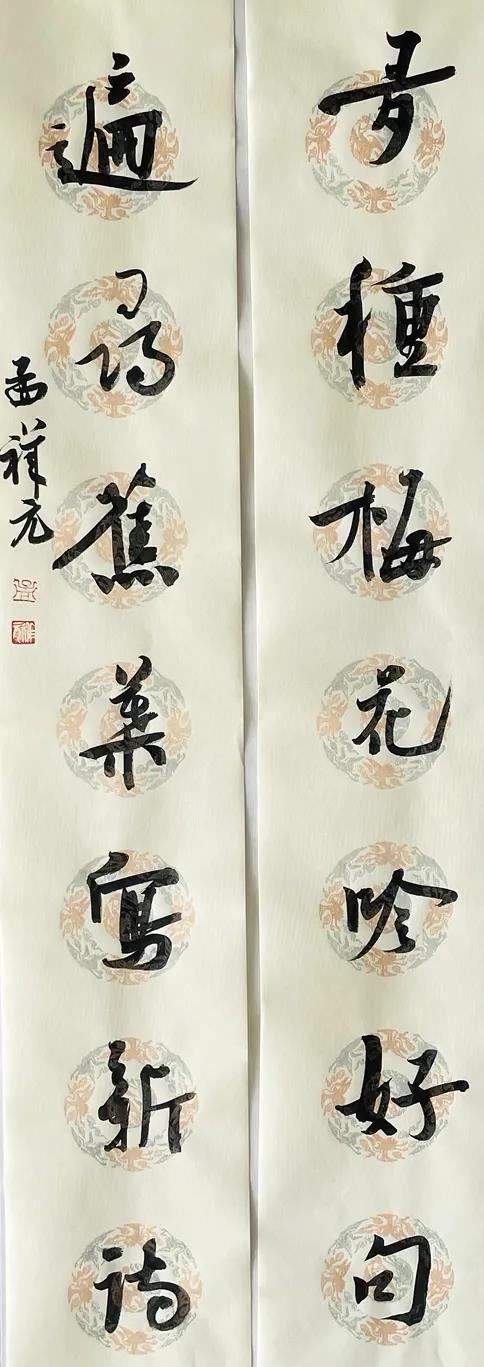 種梅花吟好句
遍尋蕉葉寫新詩
孟祥元